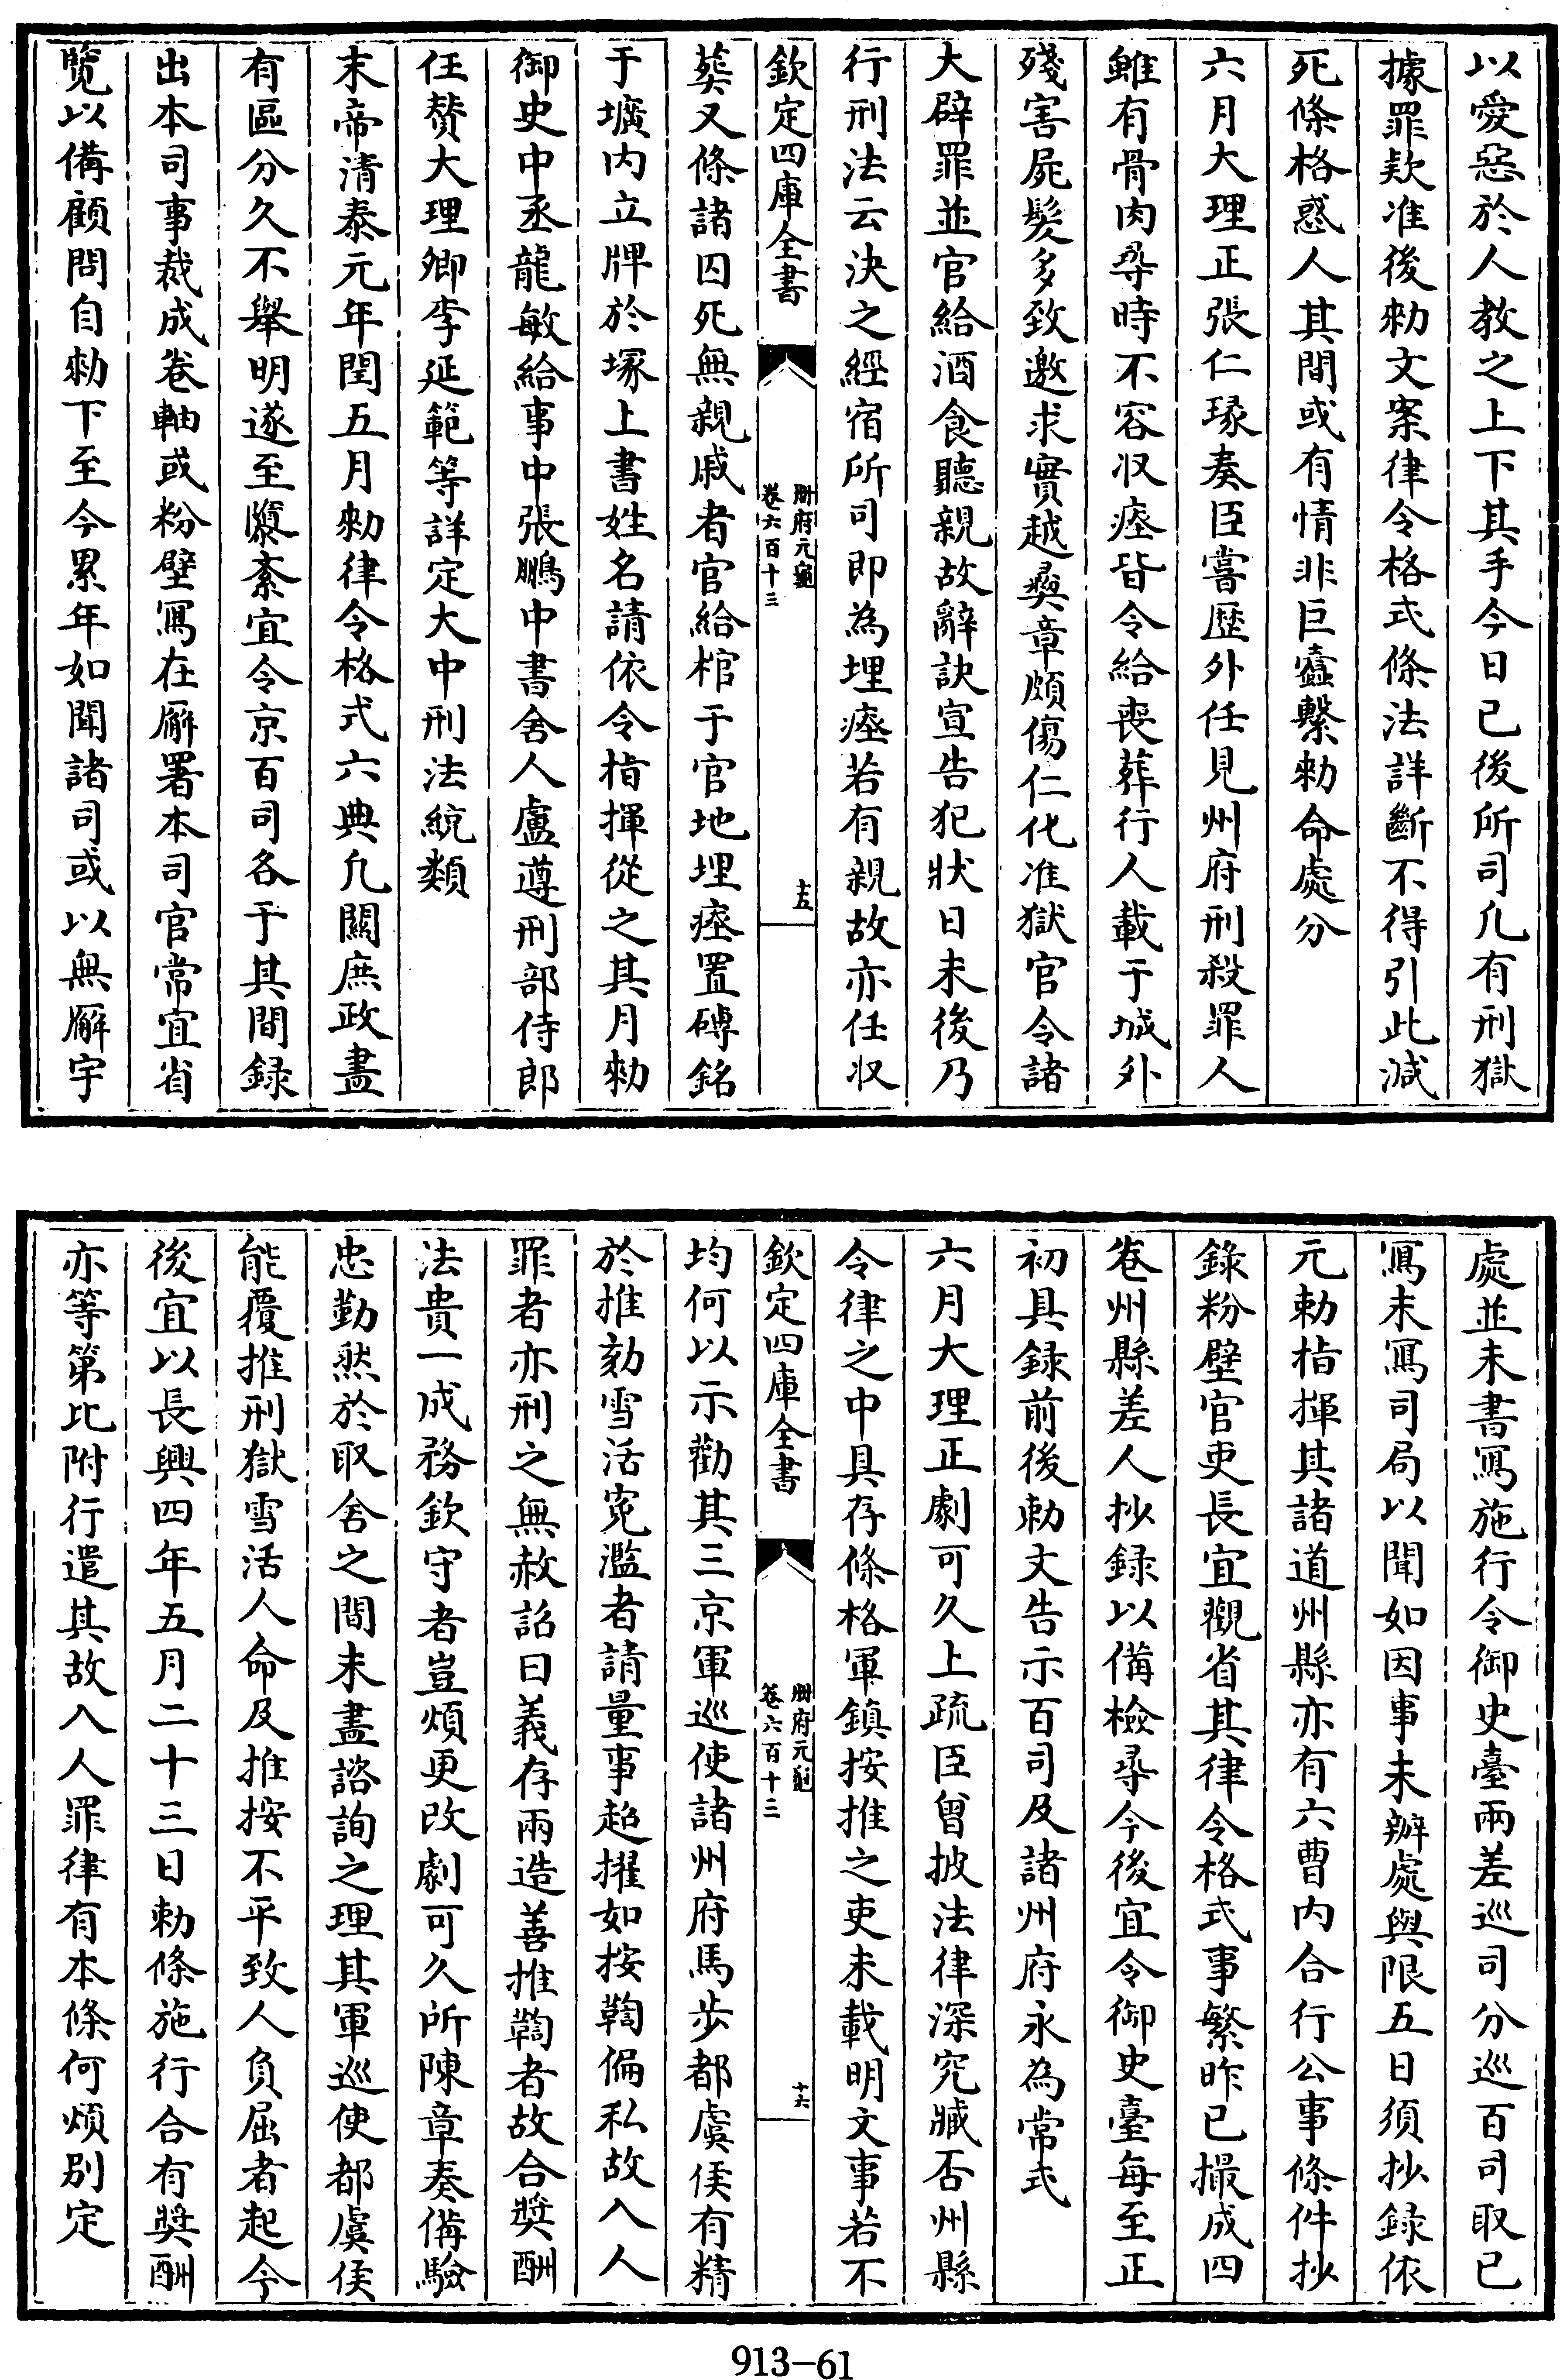 以愛惡於人教之上下其手今日已後所司凡有刑獄
據罪欵准後勑文案律令格式條法詳斷不得引此減
死條格惑人其間或有情非巨蠧繫勑命處分
六月大理正張仁瑑奏臣嘗歴外任見州府刑殺罪人
雖有骨肉尋時不容収瘞皆令給喪葬行人載于城外
殘害屍髪多致邀求實越彞章頗傷仁化准獄官令諸
大辟罪並官給酒食聽親故辭訣宣告犯狀日未後乃
行刑法云決之經宿所司即為埋瘞若有親故亦任収
欽定四庫全書
册府元龜
卷六百十三
十五
葬又條諸囚死無親戚者官給棺于官地埋瘞置磚銘
于壙内立牌於塚上書姓名請依令指揮從之其月勑
御史中丞龍敏給事中張鵬中書舍人盧遵刑部侍郎
任賛大理卿李延範等詳定大中刑法統類
末帝清泰元年閏五月勑律令格式六典凡關庶政盡
有區分久不舉明遂至隳紊宜令京百司各于其間録
出本司事裁成卷軸或粉壁寫在廨署本司官常宜省
覽以備顧問自勑下至今累年如聞諸司或以無廨宇
處並未書寫施行令御史臺兩差巡司分巡百司取已
寫未寫司局以聞如因事未辦處與限五日須抄録依
元勅指揮其諸道州縣亦有六曹内合行公事條件抄
錄粉壁官吏長宜觀省其律令格式事繁昨已撮成四
卷州縣差人抄録以備檢尋今後宜令御史臺每至正
初具録前後勅文告示百司及諸州府永為常式
六月大理正劇可久上疏臣曾披法律深究臧否州縣
令律之中具存條格軍鎮按推之吏未載明文事若不
欽定四庫全書
册府元龜
卷六百十三
十六
均何以示勸其三京軍巡使諸州府馬步都虞候有精
於推劾雪活寃濫者請量事超擢如按鞫偏私故入人
罪者亦刑之無赦詔曰義存兩造善推鞫者故合奬酬
法貴一成務欽守者豈煩更改劇可久所陳章奏備驗
忠勤然於取舍之間未盡諮詢之理其軍巡使都虞候
能覆推刑獄雪活人命及推按不平致人負屈者起今
後宜以長興四年五月二十三日勅條施行合有奬酬
亦等第比附行遣其故入人罪律有本條何煩别定
913-61